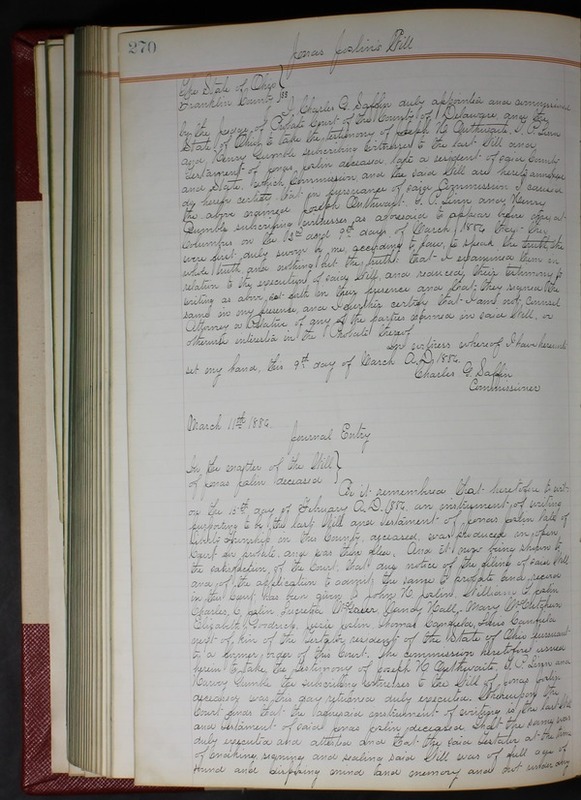 270
Jonas Joslin's Will
The State of Ohio }
Franklin County } ss
I, Charles G. Saffin duly appointed and commissioned
by the Probate Court of the County of Delaware and the
State of Ohio to take the testimony of Joseph N. Outhwaite, T. P. Linn
and Henry Gumble subscribing witnesses to the last Will and
testament of Jonas Joslin deceased, late a resident of said County
and State, which Commission and the said Will are hereto annexed
do hereby certify that in pursuance of said Commission I caused
the above named Joseph Outhwait, T. P. Linn and Henry
Gumble subscribing witnesses as aforesaid to appear before me at
Columbus on the and 9th days of March 1886, they
were first duly sworn by me, according to law, to speak the truth, the
whole truth and nothing but the truth: that I examined them in
relation to the execution of said Will, and reduced their testimony to
writing as above set forth in their presence and that they signed the
same in my presence and I further certify that I am not, counsel
Attorney or relative of any of the parties in said Will, or
otherwise interested in the Probate thereof
In witness whereof I have hereunto
set my hand, this 9th day of March A.D. 1886.
Charles G. Saffin
Commissioner
March 11th 1886
Journal Entry
In the matter of the Will }
of Jonas Joslin deceased }
Be it remembered that heretofore to wit:
on the day of February A.D. 1886, an instrument of writing
purporting to be the last Will and testament of Jonas Joslin late of
Liberty township in this County, deceased, was produced in open
Court for probate, and was then filed. And it now being shown to
the satisfaction of the Court, that due notice of the filing of said Will
and of the application to admit the same to probate and record
in this Court has been given to John Joslin, William Joslin
Charles C. Joslin Lucretia Hall, Mary
Elizabeth Goodrich, Joslin Thomas Canfield, Canfield
next of kin of the testator residents of the State of Ohio pursuant
to a former order of this Court. The commission heretofore issued
herein to take the testimony of Joseph N. Outhwaite, T. P. Linn and
Henry Gumble the subscribing witnesses to the Will of Jonas Joslin
deceased was this day returned duly executed. Whereupon the
Court finds that the aforesaid instrument of writing is the last Will
and testament of said Jonas Joslin deceased that the same was
duly executed and attested and that the said testator at the time
of making, signing and sealing said Will was of full age of
sound and disposing mind and memory and not under any